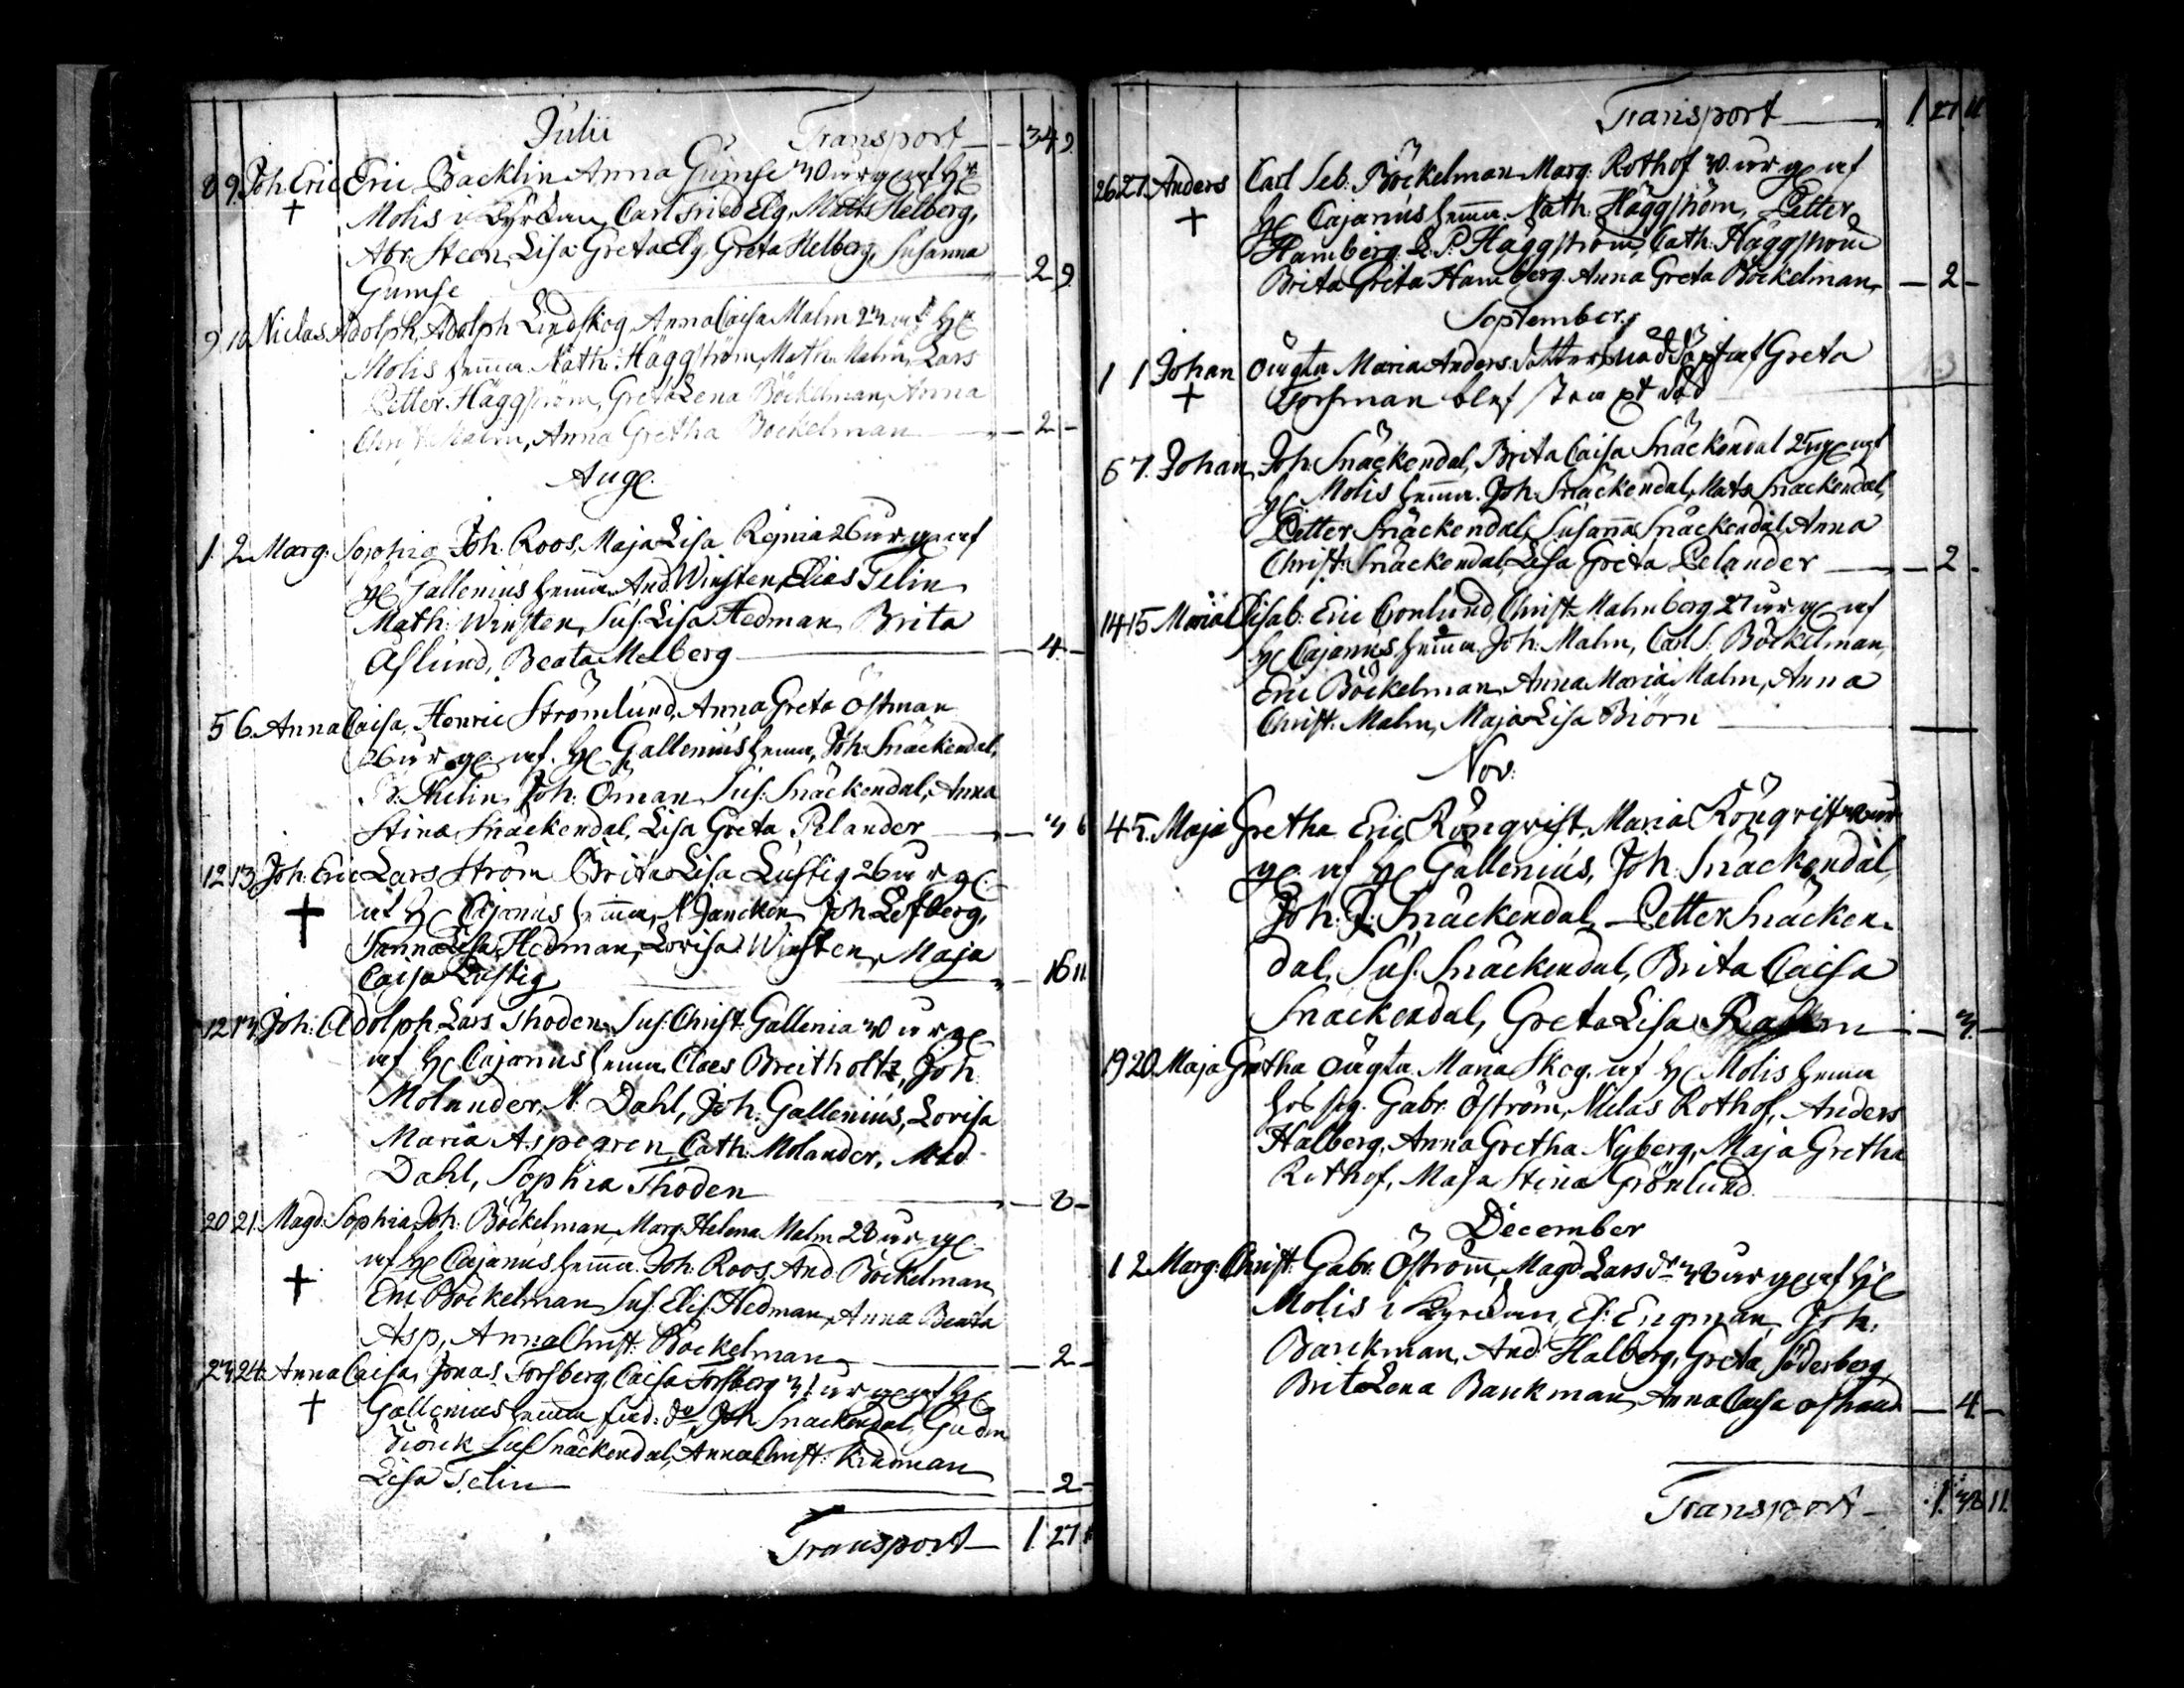 Julii Transport — 34 9.
8 9 Joh. Eric Eric Backlin Anna Gumse 30 år g. af Hr
Molis i Kyrkan, Carl Fried Elg, Mats Helberg,
Abr. Steen, Lisa Greta Elg, Greta Helberg, Susanna
Gumse — 2 9.
9 10 Niclas Adolph, Adolph Lindskog, Anna Caisa Malm 23 af Hr
Molis hemma. Math. Häggström, Math. Malm, Lars
Petter Häggström, Greta Lena Böckelman, Anna
Christ. Malm, Anna Gretha Böckelman — 2 –
Aug.
1. 2. Marg. Sophia Joh. Roos, Maja Lisa 26 år g. af
H. Gallenius hemma. And. Winsten, Elias Telin
Math. Winsten, Sus. Lisa Hedman, Brita
Åslund, Beata Melberg — 4. –
5 6. Anna Caisa, Henric Strömlund, Anna Greta Östman
26 år g. af. H. Gallenius hemma, Joh. Snäckendal,
Joh. Öman Sus. Snäckendal, Anna
Stina Snäckendal, Lisa Greta Pelander — 3 6
12 13 Joh. Eric Lars Ström Brita Lisa Lustig 26 år g.
af H. Cajanus hemma, N. Jancken, Joh. Lefberg,
Hedman, Lovisa Winsten, Maja
Caisa Lustig — 16 11.
12 13 Joh. Adolph, Lars Thoden, Sus. Christ. Gallenia 30 år g.
af H. Cajanus hemma. Claes Breitholtz, Joh.
Molander, N. Dahl, Joh. Gallenius, Lovisa
Maria Aspegren, Cath. Molander, Mad.
Dahl, Sophia Thoden — 8 –
20 21. Magd. Sophia, Joh. Böckelman, Marg. Helena Malm 28 år g.
af H. Cajanus hemma. Joh. Roos, And. Böckelman,
Eric Böckelman, Sus. Elis. Hedman, Anna Beata
Asp, Anna Christ. Böckelman — 2 –
23 24. Anna Caisa, Jonas Forsberg, Caisa Forsberg 31 år g. af H.
Gallenius hemma Joh. Snäckendal,
Sus. Snäckendal, Anna Christ. Kindman
Lisa Telin — 2 –
Transport — 1. 27
Transport — 1. 27 11
26 27. Anders Carl Seb. Böckelman Marg. Rothof 30. år g. af
H. Cajanus hemma. Math. Häggström, Petter
Hamberg, L. P. Häggström, Cath. Häggström
Brita Greta Hamberg. Anna Greta Böckelman, — 2 –
September,
1 1 Johan oägta Maria Anders dotter nöddöpt af Greta
Forsman blef
6 7. Johan, Joh. Snäckendal, Brita Caisa Snäckendal 25 g. af
H. Molis hemma. Joh. Snäckendal, Mats Snäckendal,
Petter Snäckendal, Susanna Snäckendal, Anna
Christ. Snäckendal, Lisa Greta Pelander — 2 –
14 15 Maria Elisab. Eric Cronlund, Christ. Malmberg 27 år g. af
H. Cajanus hemma. Joh. Malm, Carl S. Böckelman,
Eric Böckelman, Anna Maria Malm, Anna
Christ. Malm, Maja Lisa Biörn —
Nov.
4 5. Maja Gretha Eric Rönqvist, Maria Rönqvist
g. af H. Gallenius, Joh. Snäckendal,
Joh. J. Snäckendal, Petter Snäcken-
dal, Sus. Snäckendal, Brita Caisa
Snäckendal, Greta Lisa — 3. –
19 20. Maja Gretha oägta. Maria Skog. af H. Molis hemma
hos Gabr. Öström, Niclas Rothof, Anders
Halberg, Anna Gretha Nyberg, Maja Gretha
Rothof, Maja Stina Grönlund.
December
1 2 Marg. Christ. Gabr. Öström, Magd. Larsdr. 38 år g. af H.
Molis i Kyrkan, Engman, Joh.
Banckman, And. Halberg, Greta Söderberg
Brita Lena Banckman, Anna Caisa — 4 –
Transport — 1. 38 11.